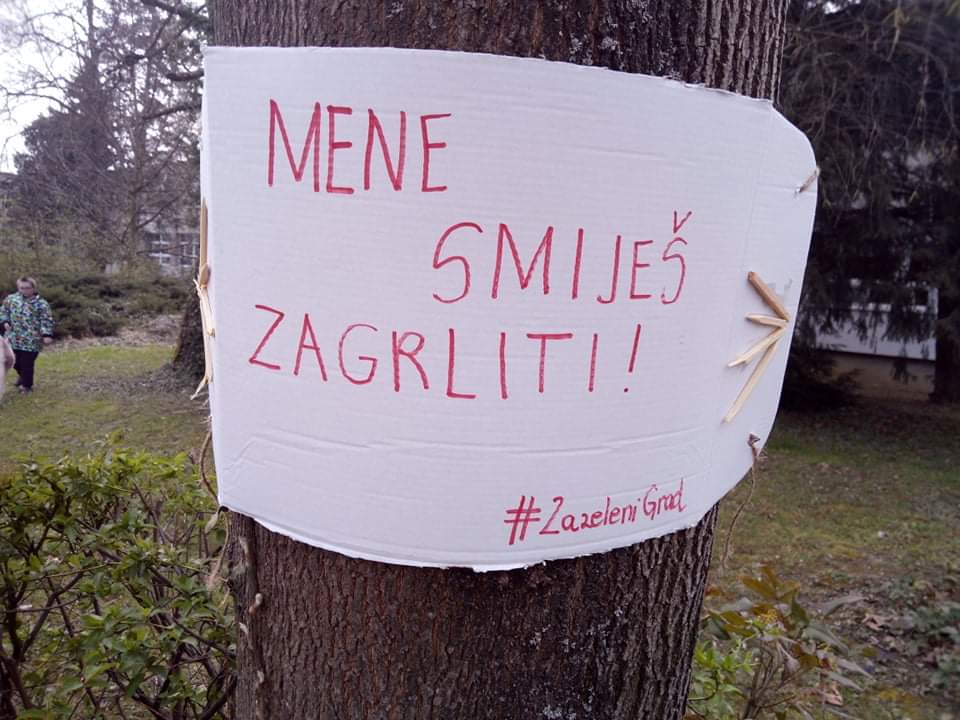 MENE
SMIJEŠ
ZAGRLITI!
#Zazeleni Grad